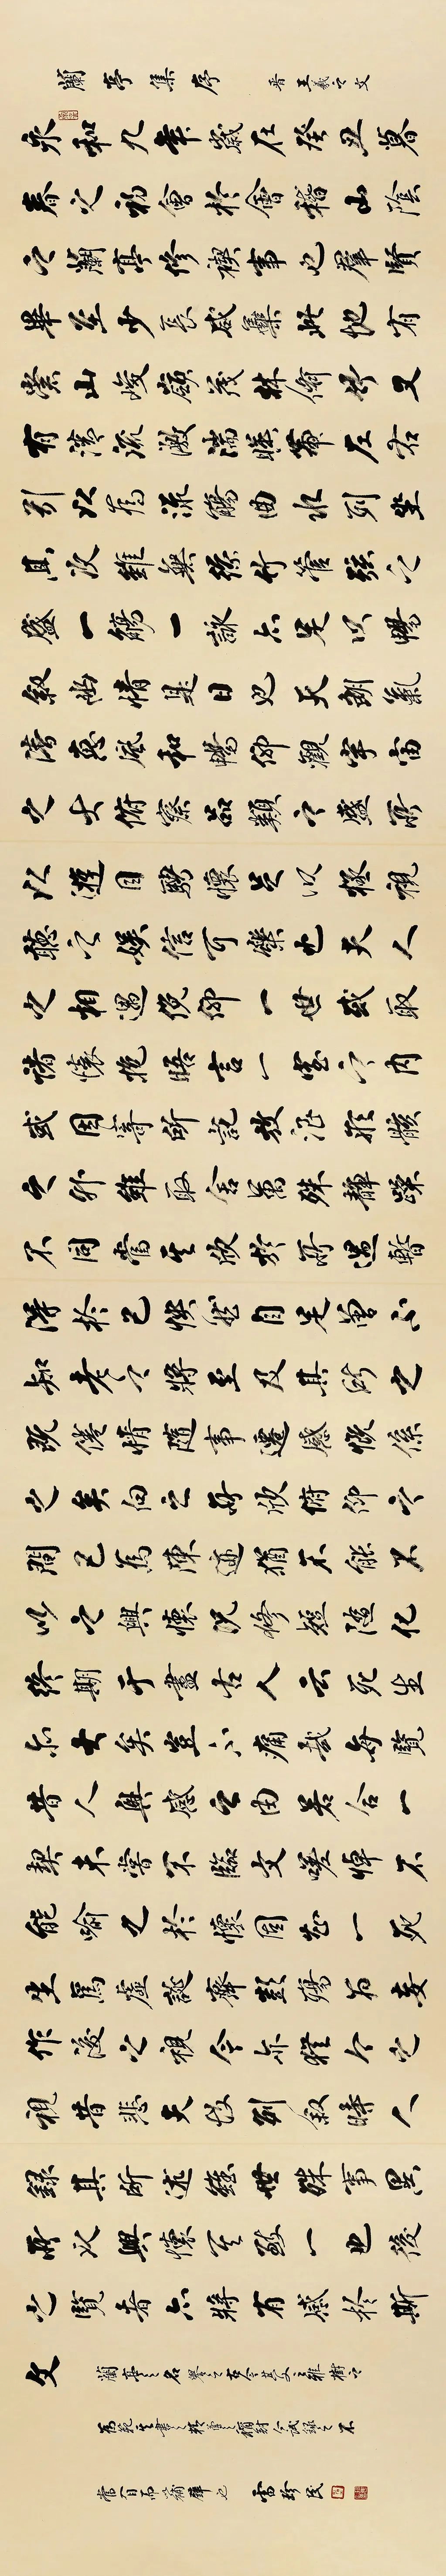 蘭亭集序 晉王羲之文
永和九年歲在癸丑暮
春之初會於會稽山陰
之蘭亭修禊事也羣賢
畢至少長咸集此地有
崇山峻嶺茂林脩竹又
有清流激湍暎帶左右
引以為流觴曲水列坐
其次雖無絲竹管弦之
盛一觴一詠亦足以暢
叙幽情是日也天朗氣
清惠風和暢仰觀宇宙
之大俯察品類之盛所
以遊目騁懷足以極視
聽之娛信可樂也夫人
之相與俛仰一世或取
諸懷抱晤言一室之內
或因寄所託放浪形骸
之外雖取舍萬殊靜躁
不同當其欣於所遇暫
得於己快然自足曾不
知老之將至及其所之
既倦情隨事遷感慨係
之矣向之所欣俯仰之
間已為陳迹猶不能不
以之興懷況修短隨化
終期于盡古人云死生
亦大矣豈不痛哉每覽
昔人興感之由若合一
契未嘗不臨文嗟悼不
能喻之於懷固知一死
生為虛誕齊彭殤為妄
作後之視今亦猶今之
視昔悲夫故列叙時人
錄其所述雖世殊事異
所以興懷其致一也後
之覽者亦將有感於斯
文 蘭亭之名譽之古今其文之雅樹之
為範其書之精
補壁也 雷珍民